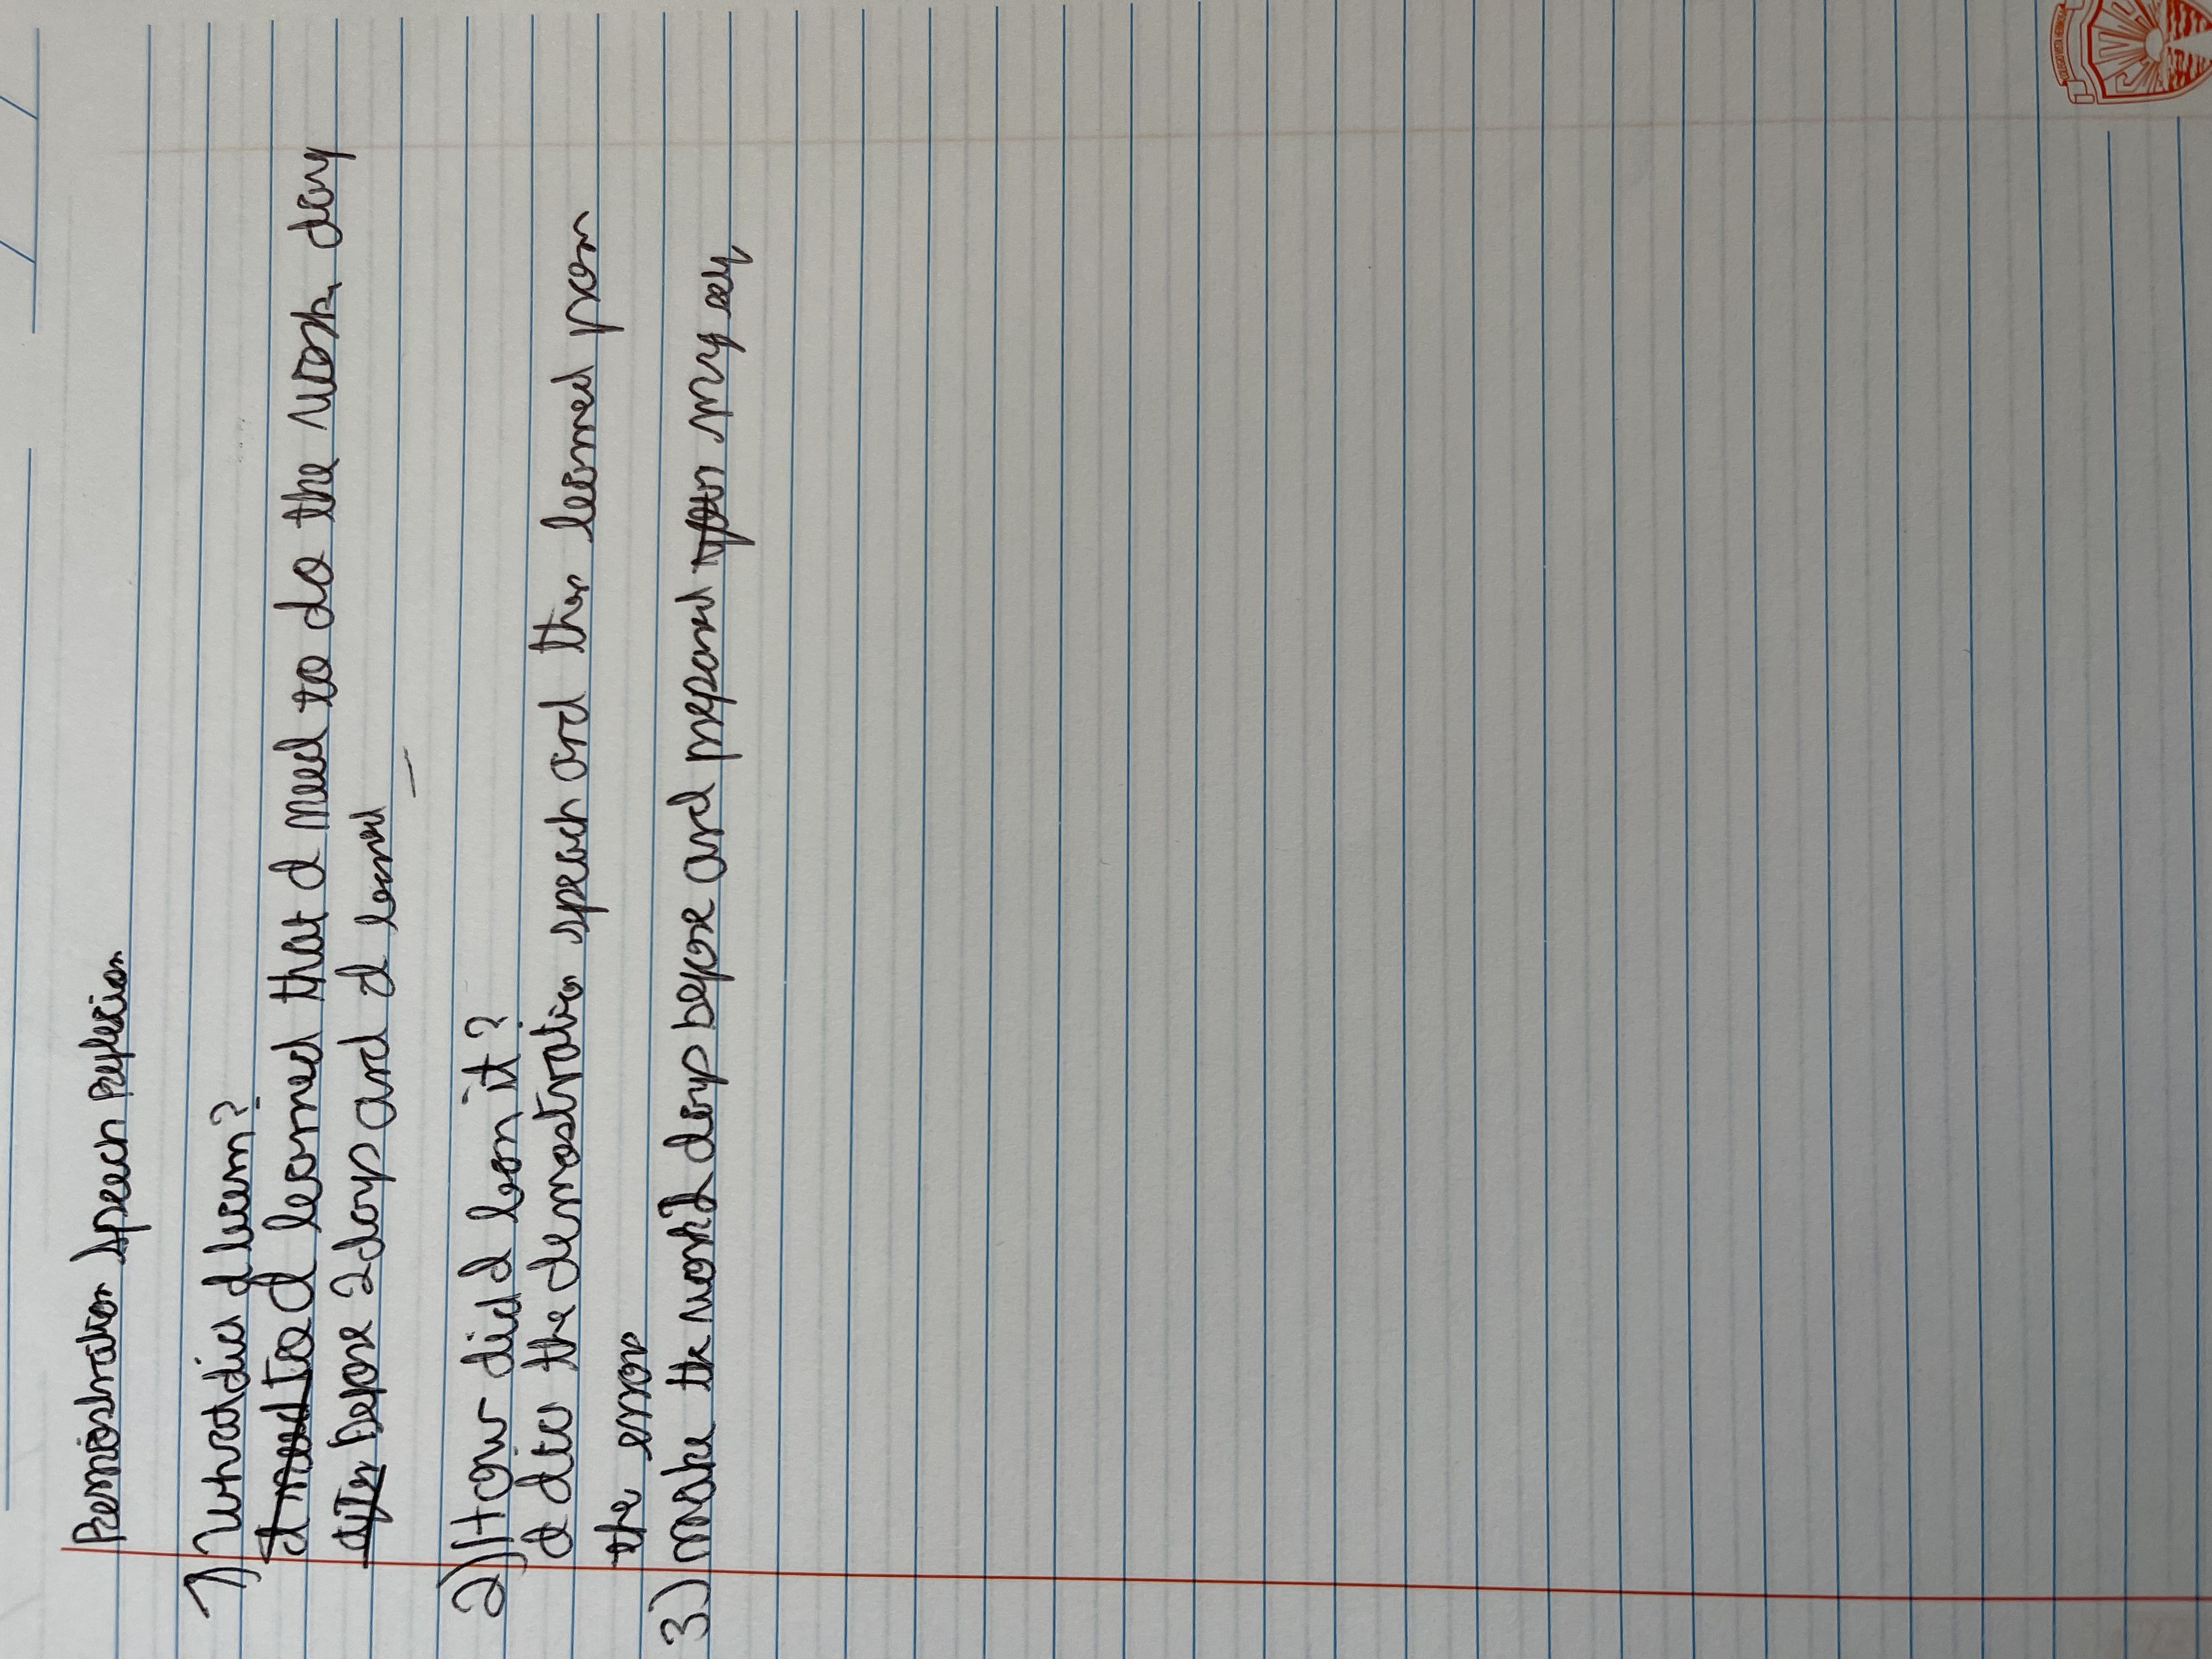 Demostration Speech Reflection
1) What did I learn?
I need to I learned that I need to do the work, day
after before 2 days and I learned
2) How did I learn it?
I did the demostration speech and then learned from
the error
3) make the work 2 days before and prepared my